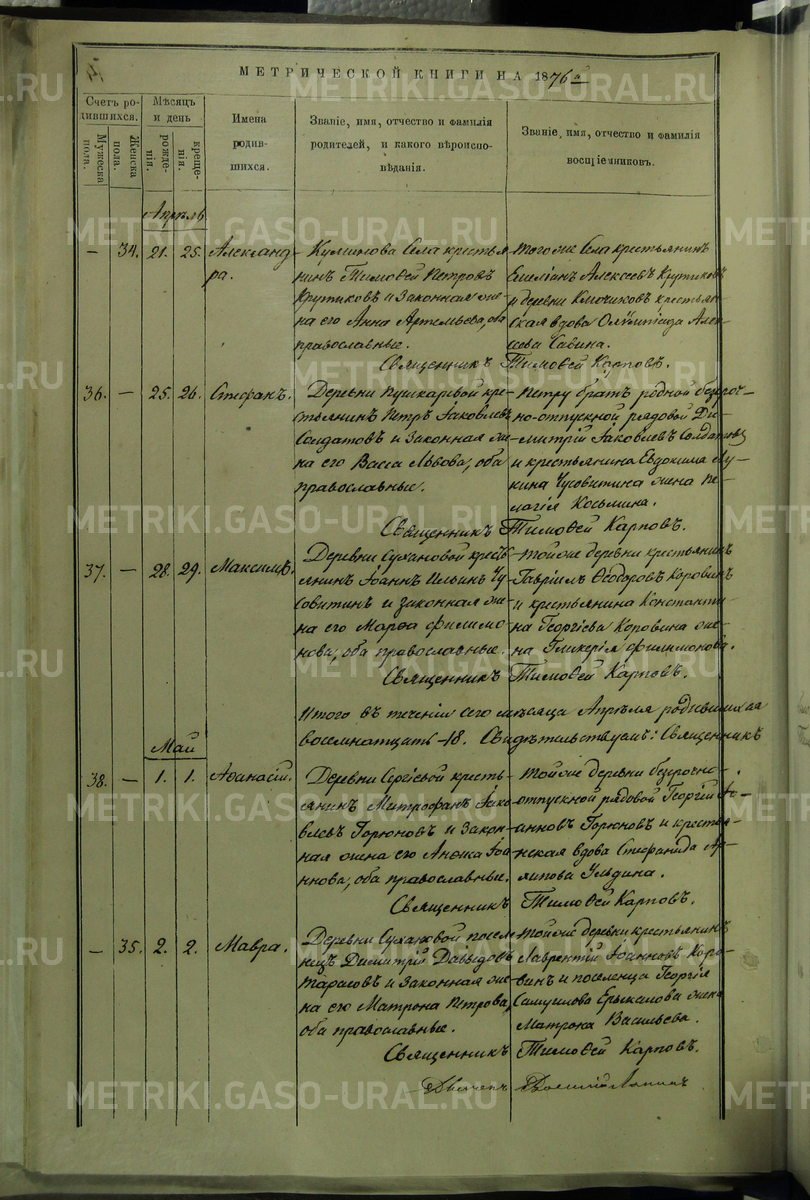 МЕТРИЧЕСКОЙ КНИГИ НА 1876 й
Счетъ ро-
дившихся.
Мужеска
пола.
Женска
пола.
Мѣсяцъ
и день
рожде-
нія.
креще-
нія.
Имена
родив-
шихся.
Званіе, имя, отчество и фамилія
родителей, и какого вѣроиспо-
вѣданія.
Званіе, имя, отчество и фамилія
воспріемниковъ.
Апрѣль
— 34. 21. 25.
Александ-
ра.
села крестья-
нинъ Тимоѳей Петровъ
Крутиковъ и законная же-
на его Анна Артемьева, оба
православные.
того же села крестьянинъ
Емеліанъ Алексеевъ Крутиковъ
и деревни Ключиковъ крестьян-
ская вдова Олимпіада Алек-
сеева Савина.
Священникъ Тимоѳей Карповъ.
36. — 25. 26.
Стефанъ.
Деревни Пушкаревой кре-
стьянинъ Петръ Іаковлевъ
Солдатовъ и законная же-
на его Васса Львова, оба
православные.
Петру братъ родной безсроч-
но-отпускной рядовой Ди-
митрій Іаковлевъ Солдатовъ
и крестьянина Евдокима Лу-
кина Чусовитина жена Пе-
лагія Косьмина.
Священникъ Тимоѳей Карповъ.
37. — 28. 29.
Максимъ.
Деревни Сухановой кресть-
янинъ Іоаннъ Ильинъ Чу-
совитинъ и законная же-
на его Марѳа Филимо-
нова, оба православные.
той же деревни крестьянинъ
Гавріилъ Ѳеодоровъ Коровинъ
и крестьянина Константи-
на Георгіева Коровина же-
на Гликерія Филимонова.
Священникъ Тимоѳей Карповъ.
Итого в теченіи сего мѣсяца Апрѣля родившихся
восемнатцать -18. Свидѣтельствуемъ: Священникъ
Май
38. — 1. 1.
Аѳанасій.
Деревни Сергіевой кресть-
янинъ Митрофанъ Іако-
влевъ Горюновъ и закон-
ная жена его Анѳиса Іоа-
ннова, оба православные.
той же деревни безсрочно-
отпускной рядовой Георгій
Іоанновъ Горюновъ и кресть-
янская вдова Стефанида
Ульдина.
Священникъ Тимоѳей Карповъ.
— 35. 2. 2.
Мавра.
Деревни Сухановой поселе-
нецъ Димитрій Давыдовъ
Тарасовъ и законная же-
на его Матрона Петрова,
оба православные.
той же деревни крестьянинъ
Лаврентій Іоанновъ Коро-
винъ и поселенца Георгія
Самуилова жена
Матрона Васильева.
Священникъ Тимоѳей Карповъ.
METRIKI.GASO-URAL.RU